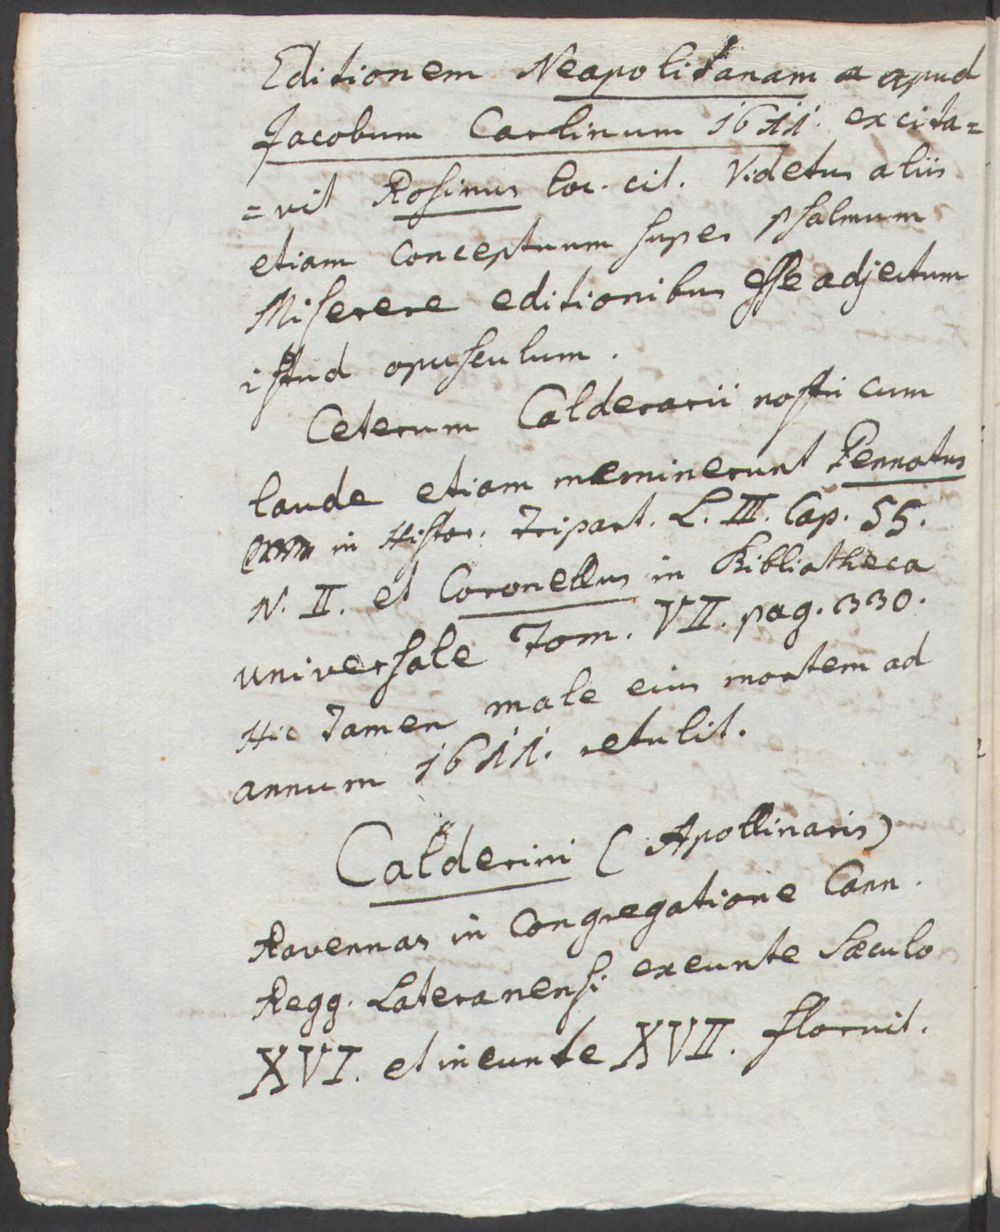 Editionem Neapolitanam a apud
Jacobum Carlinum 1611. excita=
=vit Rosinus loc. cit. Videtur aliis
etiam Conceptuum super Psalmum
Miserere editionibus esse adjectum
istud opusculum.
Ceterum Calderarii nostri cum
laude etiam meminerunt Pennotus
in Histor. Tripart. L. III. Cap. 55.
N. II. et Coronellus in Bibliotheca
universale Tom. VII. pag. 330.
Hic tamen male eius mortem ad
annum 1611. retulit.
Calderini (Apollinaris)
Ravennas in Congregatione Cann.
Regg. Lateranensi exeunte Sæculo
XVI. et ineunte XVII. floruit.